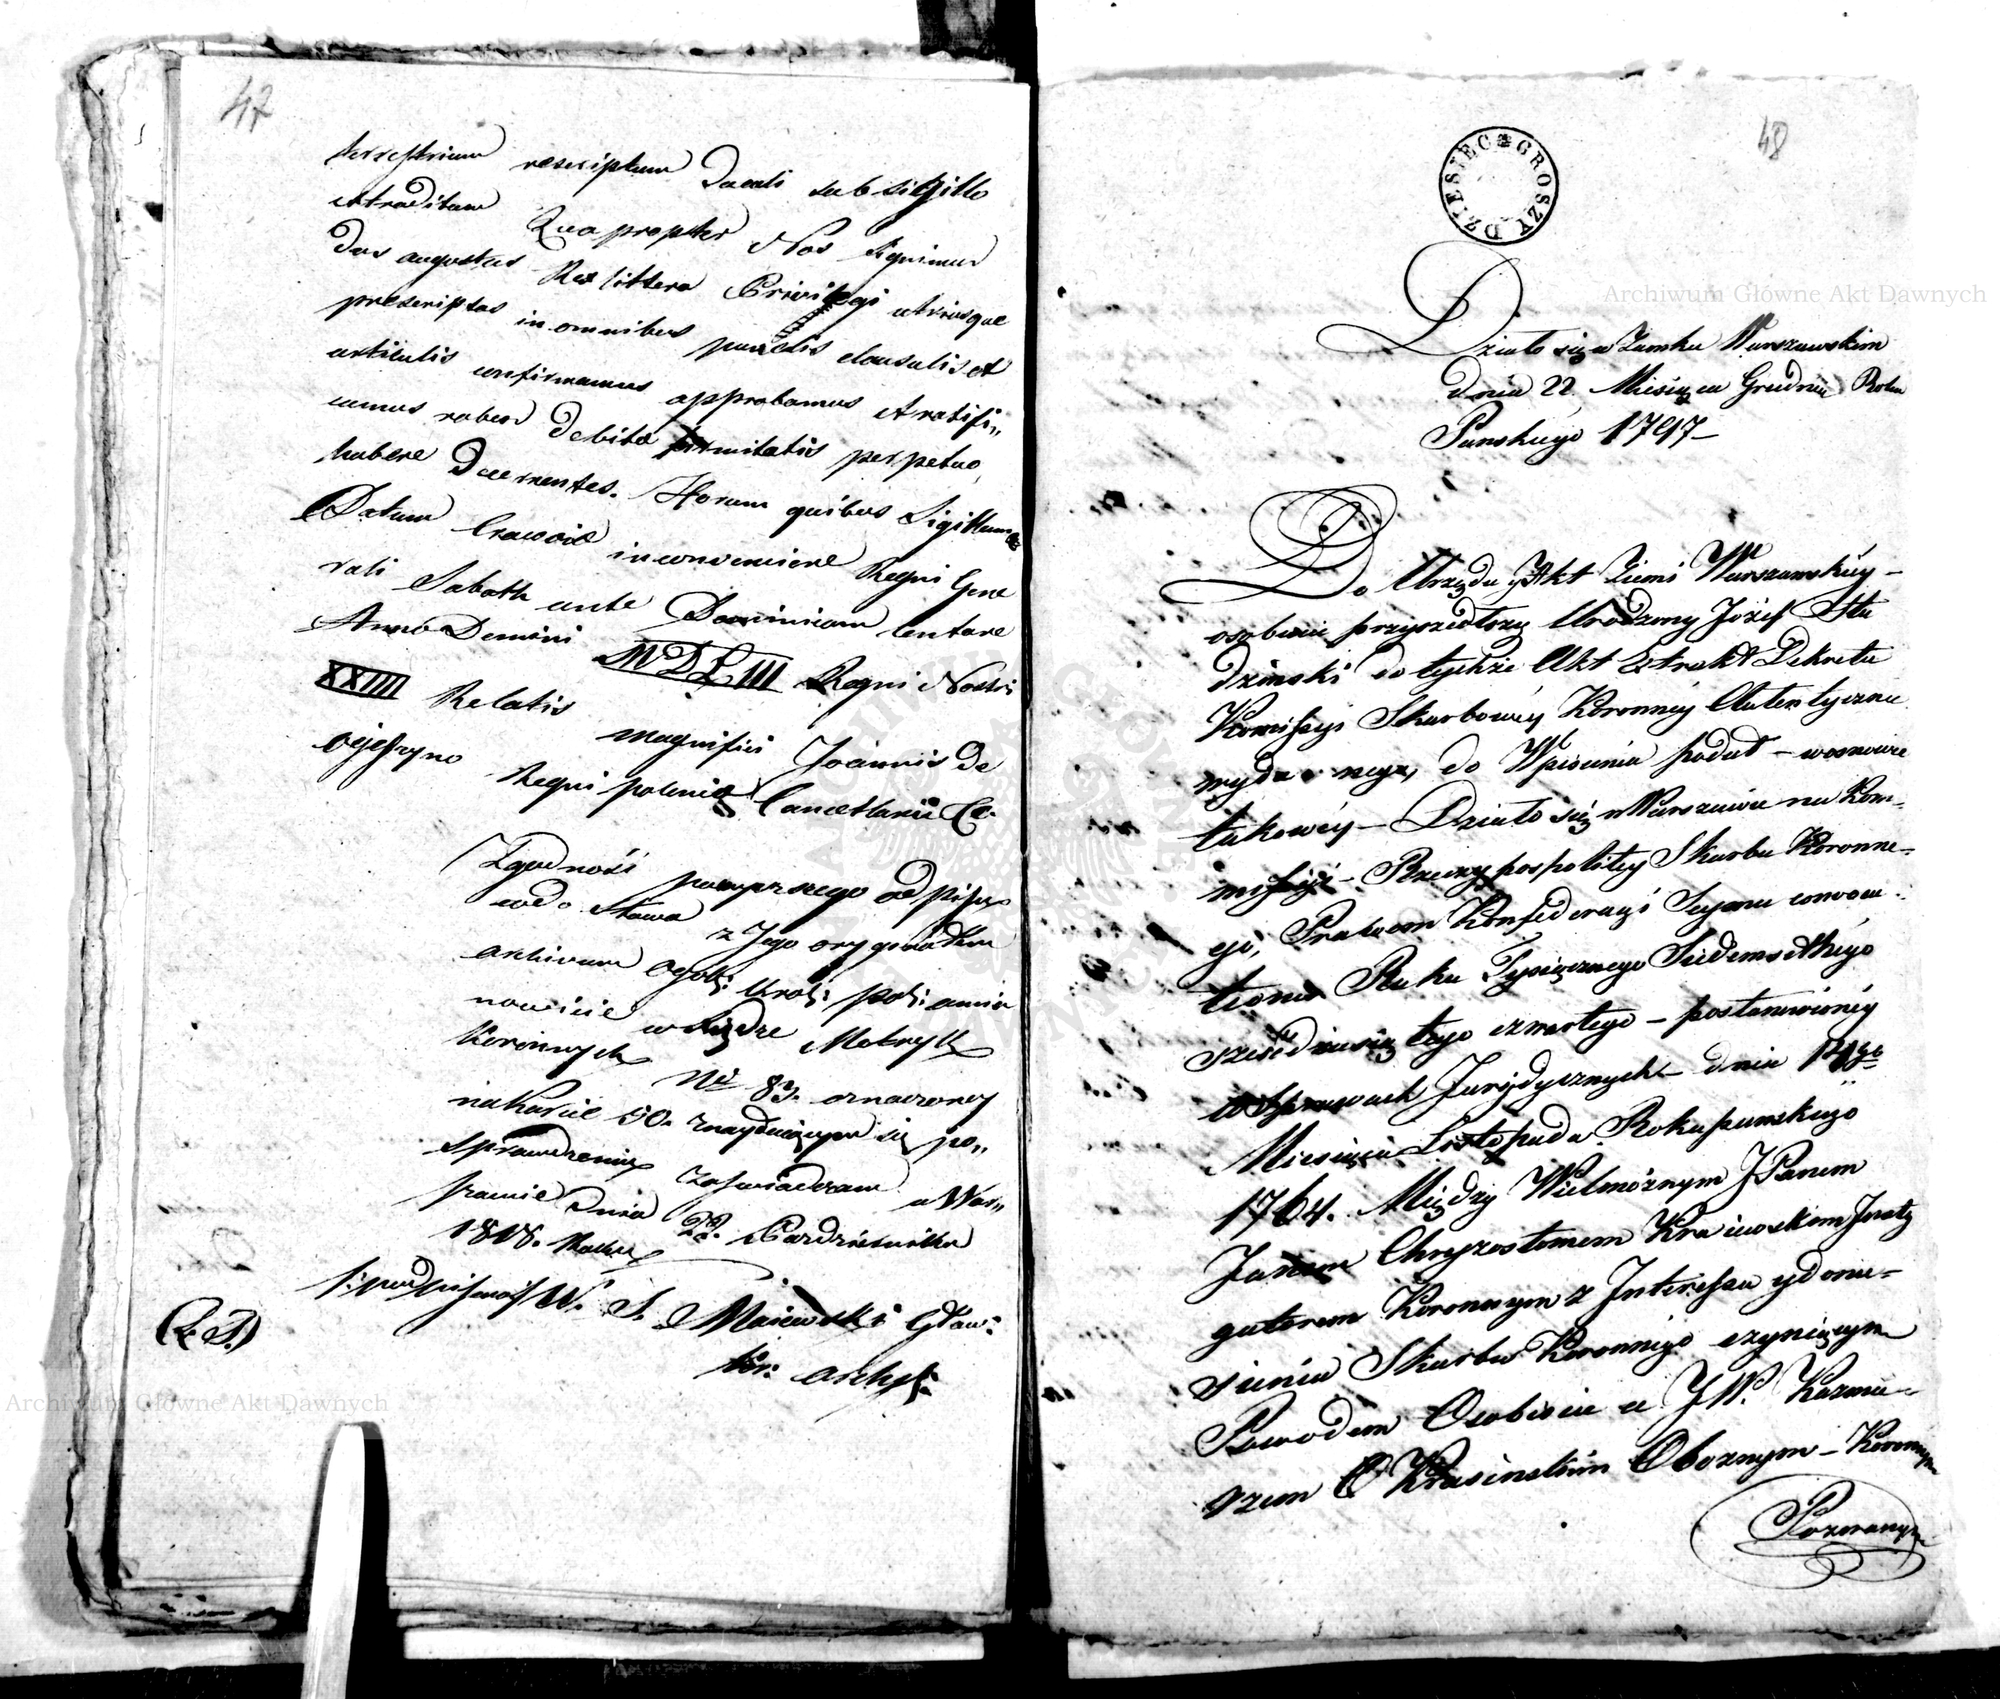 47
terrestrium rescriptum Ducali sub sigillo
extraditum Qua propter Nos Sigismun
dus augustus Rex littera Privilegi utriusque
prescriptas in omnibus punctis clausulis et
articulis confirmamus approbamus et ratifi„
camus robur debita firmitatis perpetuo
habere Decernentes. Horum quibus Sigillum
Datum Cracovie in convencione Regni Gene
rali Sabath ante Dominicam Cantare
Anno Domini MDLIII Regni Nostri
XXIII Relatio magnifici Joannis de
Ocieszyno Regni polonie Cancellarii &c.
Zgodność powyższego odpisu
co do słowa z Jego oryginałem
w archivum
nowicie w Xiędze Metryk
Koronnych No 83. oznaczoney
na karcie 50. znayduiącym się po„
sprawdzeniu zaświadczam w War„
szawie Dnia 22. Października
1818. Roku
/:podpisano/ W. S. Maiewski Gław:
(L.S.)
archy:
48
DZIESIĘĆ GROSZY
Działo się w Zamku Warszawskim
dnia 22 Miesiąca Grudnia Roku
Pańskiego 1797 –
Do Urzędu y Akt Ziemi Warszawskiey –
osobiście przyszedłszy Urodzony Józef Stu
dziński do tychże Akt Extrakt Dekretu
Kommissyi Skarbowey Koronney Autentycznie
wydanego, do Wpisania podał – w osnowie
takowey – Działo się w Warszawie na Kom„
missyi – Rzeczypospolitey Skarbu Koronne„
go, Prawem Konfederacyi Seymu convoca„
tionis Roku Tysiącznego Siedemsetnego
sześćdziesiątego czwartego – postanowioney
w Sprawach Jurydycznych – dnia
Miesiąca Listopada Roku pańskiego
1764. Między Wielmożnym JPanem
Janem Chryzostomem Kraiewskim Insty
gatorem Koronnym z Interessu y donie„
sienia Skarbu Koronnego czyniącym
Powodem Osobiście a JW. Kazmie„
rzem Krasinskim Oboznym – Koronnym
Pozwanym
Archiwum Główne Akt Dawnych
Archiwum Główne Akt Dawnych